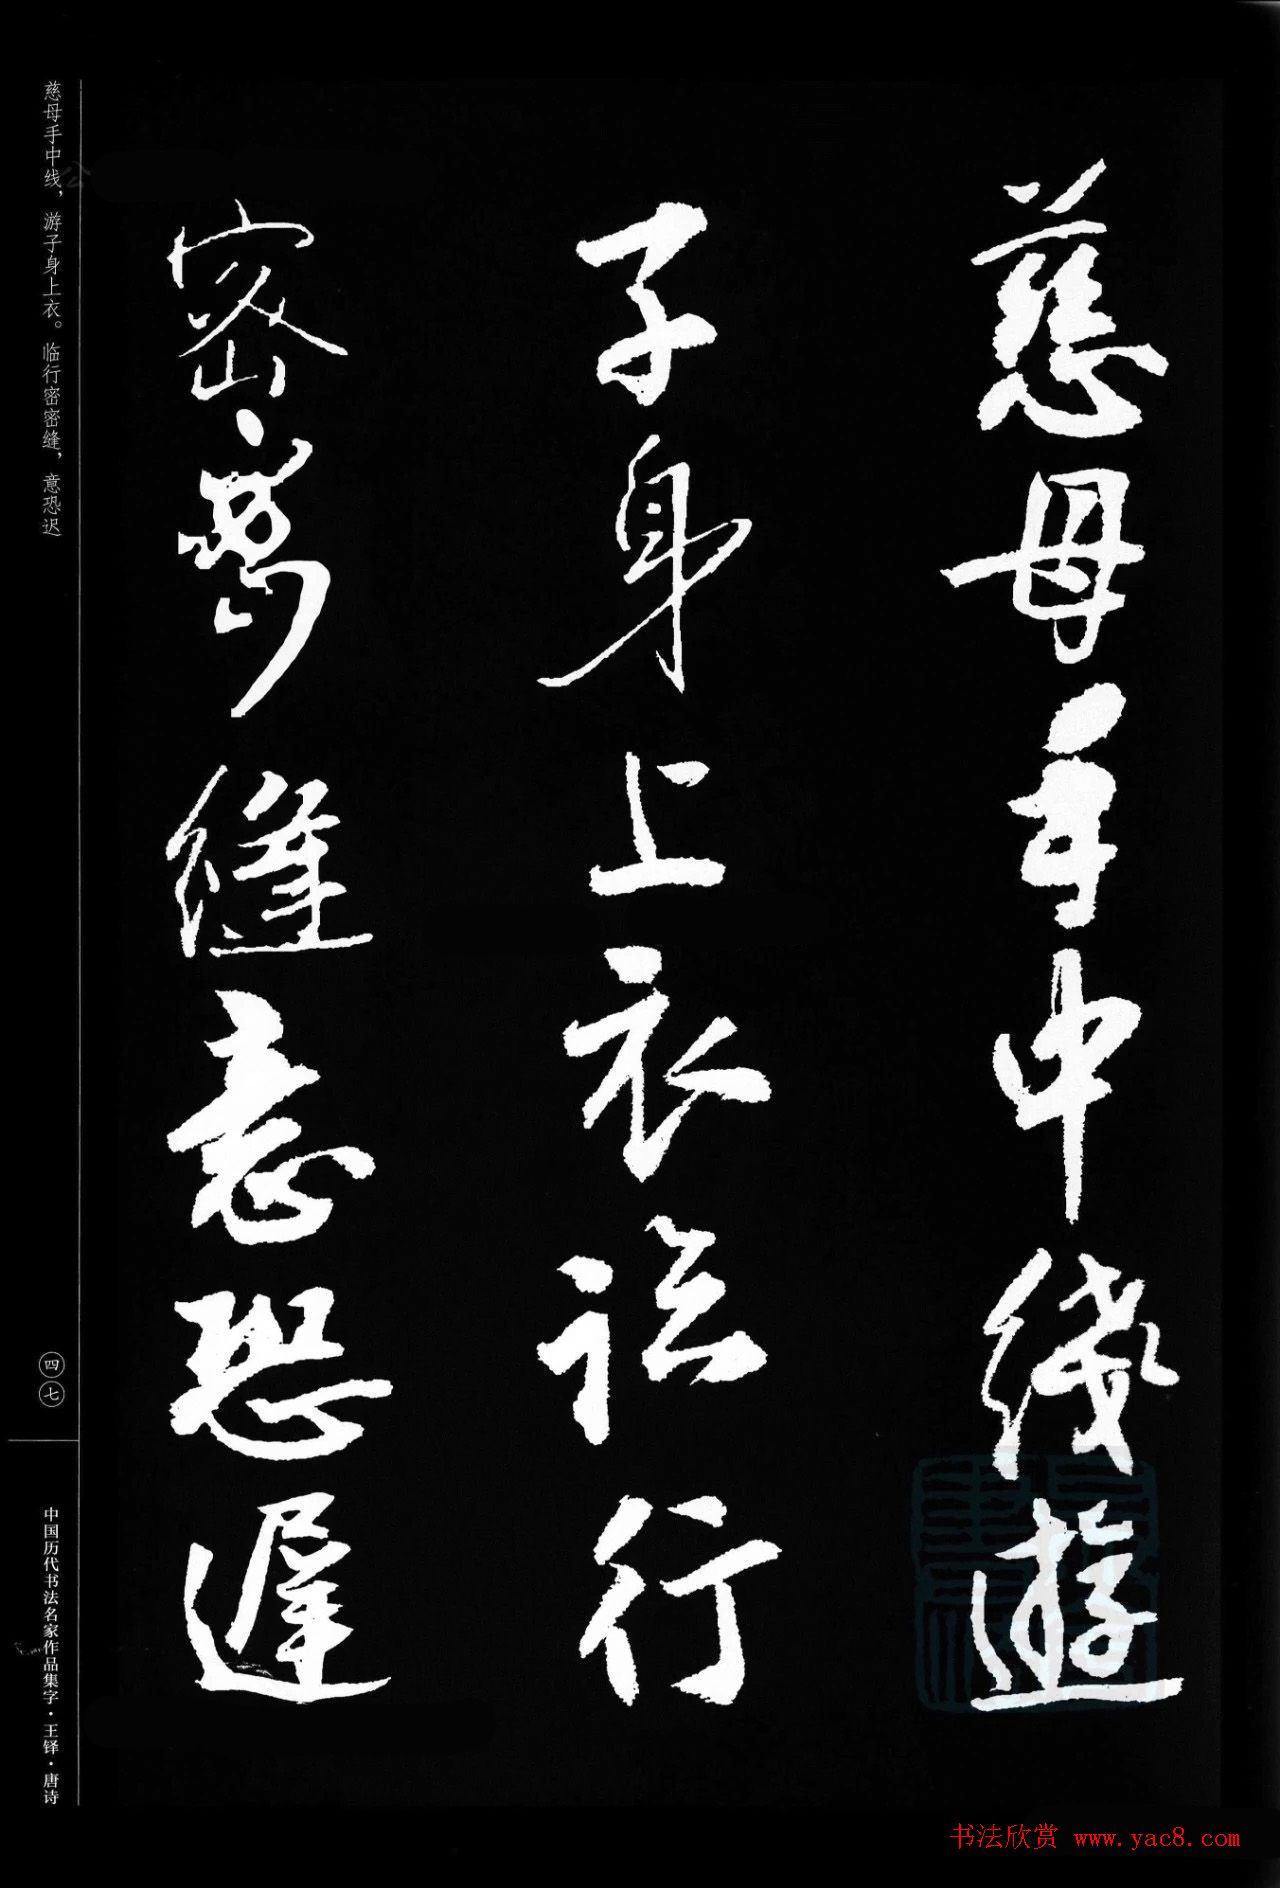 慈母手中綫遊
子身上衣临行
密密縫意恐遲
慈母手中线，游子身上衣。临行密密缝，意恐迟
四七
中国历代书法名家作品集字·王铎·唐诗
书法欣赏 www.yac8.com